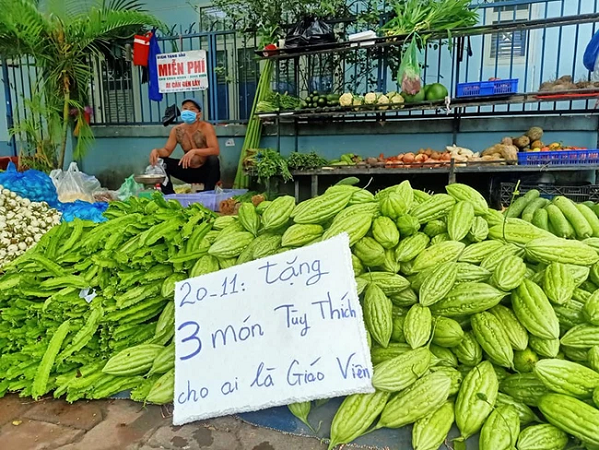 MIỄN PHÍ
AI CẦN ĐẾN LẤY
20-11: tặng
3 món Tùy Thích
cho ai là Giáo Viên